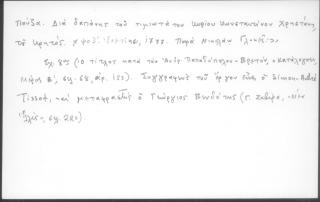 Πούζα. Διά δαπάνης τοῦ τιμιωτάτου Κυρίου Κωνσταντίνου Χρηστάκη,
τοῦ Κρητός. Ἐνετίῃσι, 1777. Παρά Νικολάῳ Γλυκεῖ
Σχ. 8ον (ὁ τίτλος κατά τόν Ἀνδρ. Παπαδόπουλον-Βρετόν, Κατάλογος,
Μέρος Β', σελ. 68, ἀρ. 155). Συγγραφεύς τοῦ ἔργου εἶναι ὁ Simon-André
Tissot, καί μεταφραστής ὁ Γεώργιος Βενδότης (Γ. Ζαβίρα,
σελ. 220).